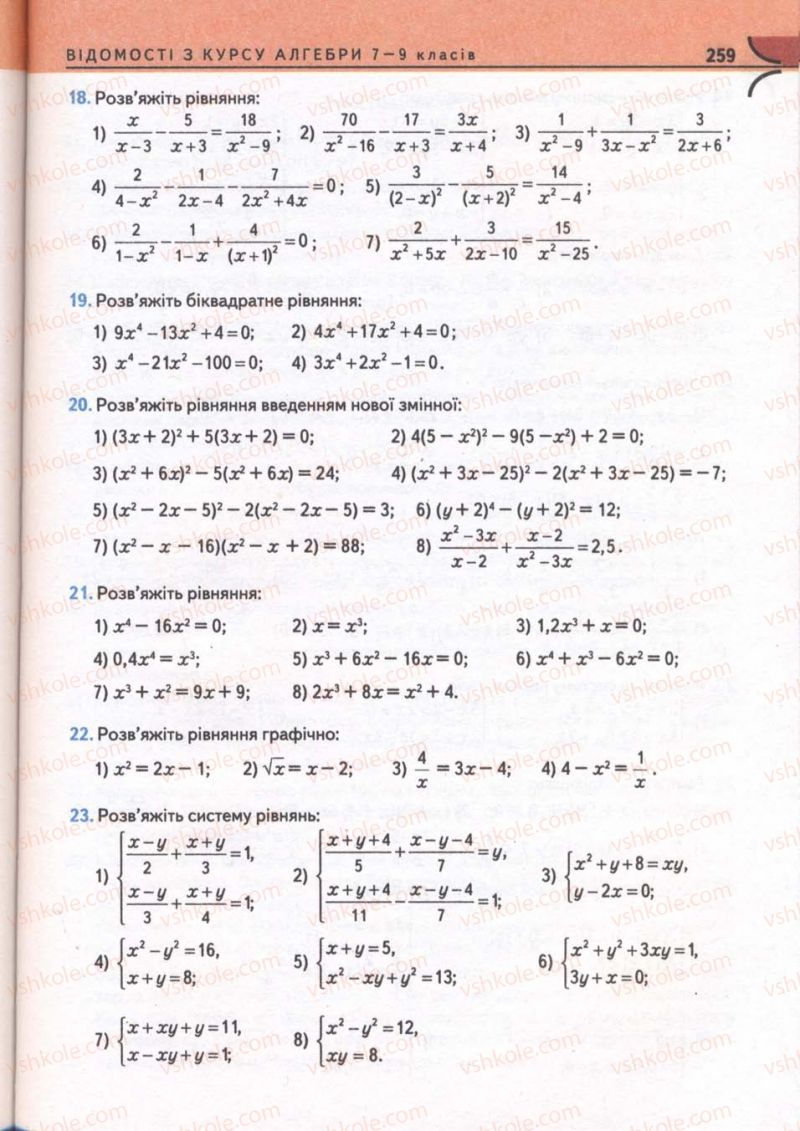 ВІДОМОСТІ З КУРСУ АЛГЕБРИ 7–9 класів 259
18. Розв'яжіть рівняння:
1) x/(x−3) − 5/(x+3) = 18/(x²−9); 2) 70/(x²−16) − 17/(x+3) = 3x/(x+4); 3) 1/(x²−9) + 1/(3x−x²) = 3/(2x+6);
4) 2/(4−x²) − 1/(2x−4) − 7/(2x²+4x) = 0; 5) 3/(2−x)² − 5/(x+2)² = 14/(x²−4);
6) 2/(1−x²) − 1/(1−x) + 4/(x+1)² = 0; 7) 2/(x²+5x) + 3/(2x−10) = 15/(x²−25).
19. Розв'яжіть біквадратне рівняння:
1) 9x⁴−13x²+4=0; 2) 4x⁴+17x²+4=0;
3) x⁴−21x²−100=0; 4) 3x⁴+2x²−1=0.
20. Розв'яжіть рівняння введенням нової змінної:
1) (3x + 2)² + 5(3x + 2) = 0; 2) 4(5 − x²)² − 9(5 −x²) + 2 = 0;
3) (x² + 6x)² − 5(x² + 6x) = 24; 4) (x² + 3x − 25)² − 2(x² + 3x − 25) = − 7;
5) (x² − 2x − 5)² − 2(x² − 2x − 5) = 3; 6) (y + 2)⁴ − (y + 2)² = 12;
7) (x² − x − 16)(x² − x + 2) = 88; 8) (x²−3x)/(x−2) + (x−2)/(x²−3x) = 2,5.
21. Розв'яжіть рівняння:
1) x⁴ − 16x² = 0; 2) x = x³; 3) 1,2x³ + x = 0;
4) 0,4x⁴ = x³; 5) x³ + 6x² − 16x = 0; 6) x⁴ + x³ − 6x² = 0;
7) x³ + x² = 9x + 9; 8) 2x³ + 8x = x² + 4.
22. Розв'яжіть рівняння графічно:
1) x² = 2x − 1; 2) √x = x − 2; 3) 4/x = 3x − 4; 4) 4 − x² = 1/x.
23. Розв'яжіть систему рівнянь:
1) { (x−y)/2 + (x+y)/3 = 1, (x−y)/3 + (x+y)/4 = 1; 2) { (x+y+4)/5 + (x−y−4)/7 = y, (x+y+4)/11 − (x−y−4)/7 = 1; 3) { x²+y+8=xy, y−2x=0;
4) { x²−y²=16, x+y=8; 5) { x+y=5, x²−xy+y²=13; 6) { x²+y²+3xy=1, 3y+x=0;
7) { x+xy+y=11, x−xy+y=1; 8) { x²−y²=12, xy = 8.
vshkole.com